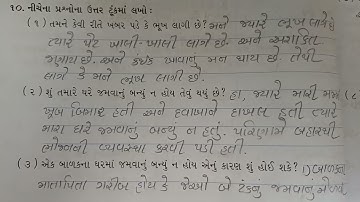 ૧૦. નીચેના પ્રશ્નોના ઉત્તર ટૂંકમાં લખો :
(૧) તમને કેવી રીતે ખબર પડે કે ભૂખ લાગી છે? મને જ્યારે ભૂખ લાગે છે
ત્યારે પેટ ખાલી-ખાલી લાગે છે. અને અશક્તિ
જણાય છે. અને કંઈક ખાવાનું મન થાય છે. તેથી
લાગે કે મને ભૂખ લાગી છે.
(૨) શું તમારે ઘરે જમવાનું બન્યું ન હોય તેવું થયું છે? હા, જ્યારે મારી મમ્મી
ખૂબ બિમાર હતી અને દવાખાને દાખલ હતી ત્યારે
મારા ઘરે જમવાનું બન્યુ ન હતું. પરિણામે બહારથી
ભોજનની વ્યવસ્થા કરવી પડી હતી.
(૩) એક બાળકના ઘરમાં જમવાનું બન્યું ન હોય એનું કારણ શું હોઈ શકે? ૧) બાળકના
માતાપિતા ગરીબ હોય કે જેઓ બે ટંકનું જમવાનું મેળવી